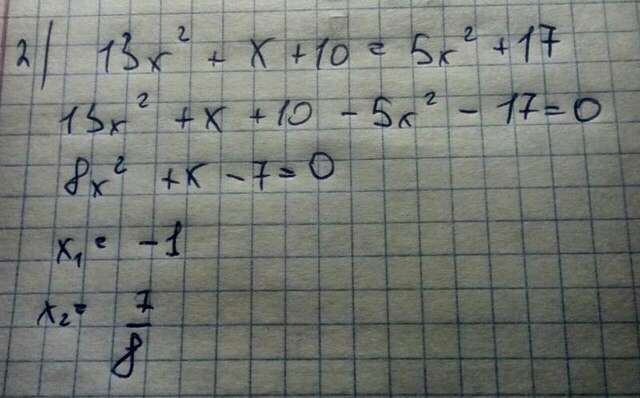 2) 13x² + x + 10 = 5x² + 17
13x² + x + 10 - 5x² - 17 = 0
8x² + x - 7 = 0
x₁ = -1
x₂ = 7/8